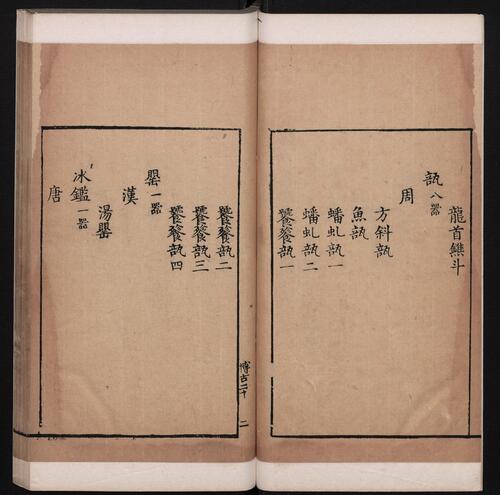 龍首鐎斗
瓿八器
周
方斜瓿
魚瓿
蟠虬瓿一
蟠虬瓿二
饕餮瓿一
博古二十
二
饕餮瓿二
饕餮瓿三
饕餮瓿四
罌一器
漢
湯罌
冰鑑一器
唐